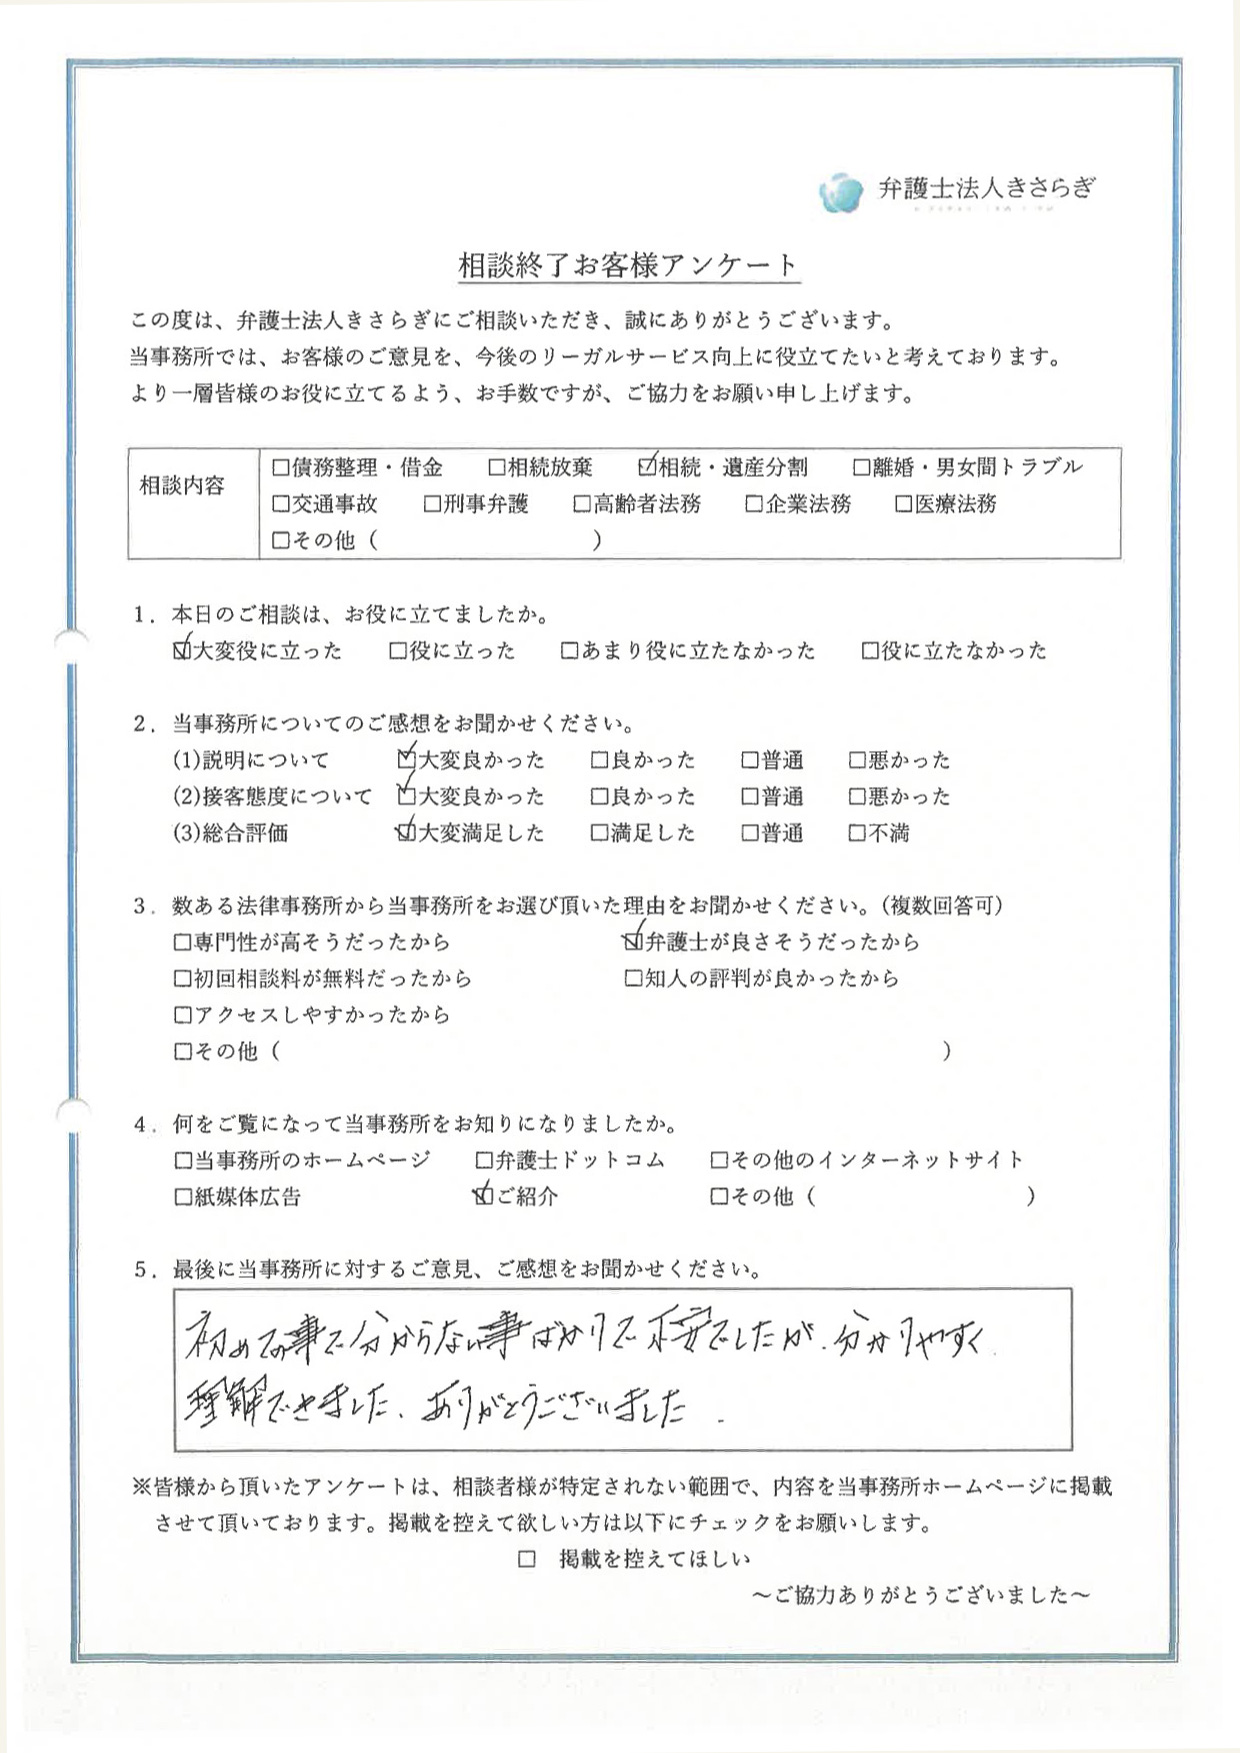 弁護士法人きさらぎ
相談終了お客様アンケート
この度は、弁護士法人きさらぎにご相談いただき、誠にありがとうございます。
当事務所では、お客様のご意見を、今後のリーガルサービス向上に役立てたいと考えております。
より一層皆様のお役に立てるよう、お手数ですが、ご協力をお願い申し上げます。
相談内容
□債務整理・借金 □相続放棄 ☑相続・遺産分割 □離婚・男女間トラブル
□交通事故 □刑事弁護 □高齢者法務 □企業法務 □医療法務
□その他（ ）
1．本日のご相談は、お役に立てましたか。
☑大変役に立った □役に立った □あまり役に立たなかった □役に立たなかった
2．当事務所についてのご感想をお聞かせください。
(1)説明について ☑大変良かった □良かった □普通 □悪かった
(2)接客態度について ☑大変良かった □良かった □普通 □悪かった
(3)総合評価 ☑大変満足した □満足した □普通 □不満
3．数ある法律事務所から当事務所をお選び頂いた理由をお聞かせください。（複数回答可）
□専門性が高そうだったから ☑弁護士が良さそうだったから
□初回相談料が無料だったから □知人の評判が良かったから
□アクセスしやすかったから
□その他（ ）
4．何をご覧になって当事務所をお知りになりましたか。
□当事務所のホームページ □弁護士ドットコム □その他のインターネットサイト
□紙媒体広告 ☑ご紹介 □その他（ ）
5．最後に当事務所に対するご意見、ご感想をお聞かせください。
初めての事で分からない事ばかりで不安でしたが、分かりやすく
理解できました、ありがとうございました。
※皆様から頂いたアンケートは、相談者様が特定されない範囲で、内容を当事務所ホームページに掲載
させて頂いております。掲載を控えて欲しい方は以下にチェックをお願いします。
□ 掲載を控えてほしい
～ご協力ありがとうございました～